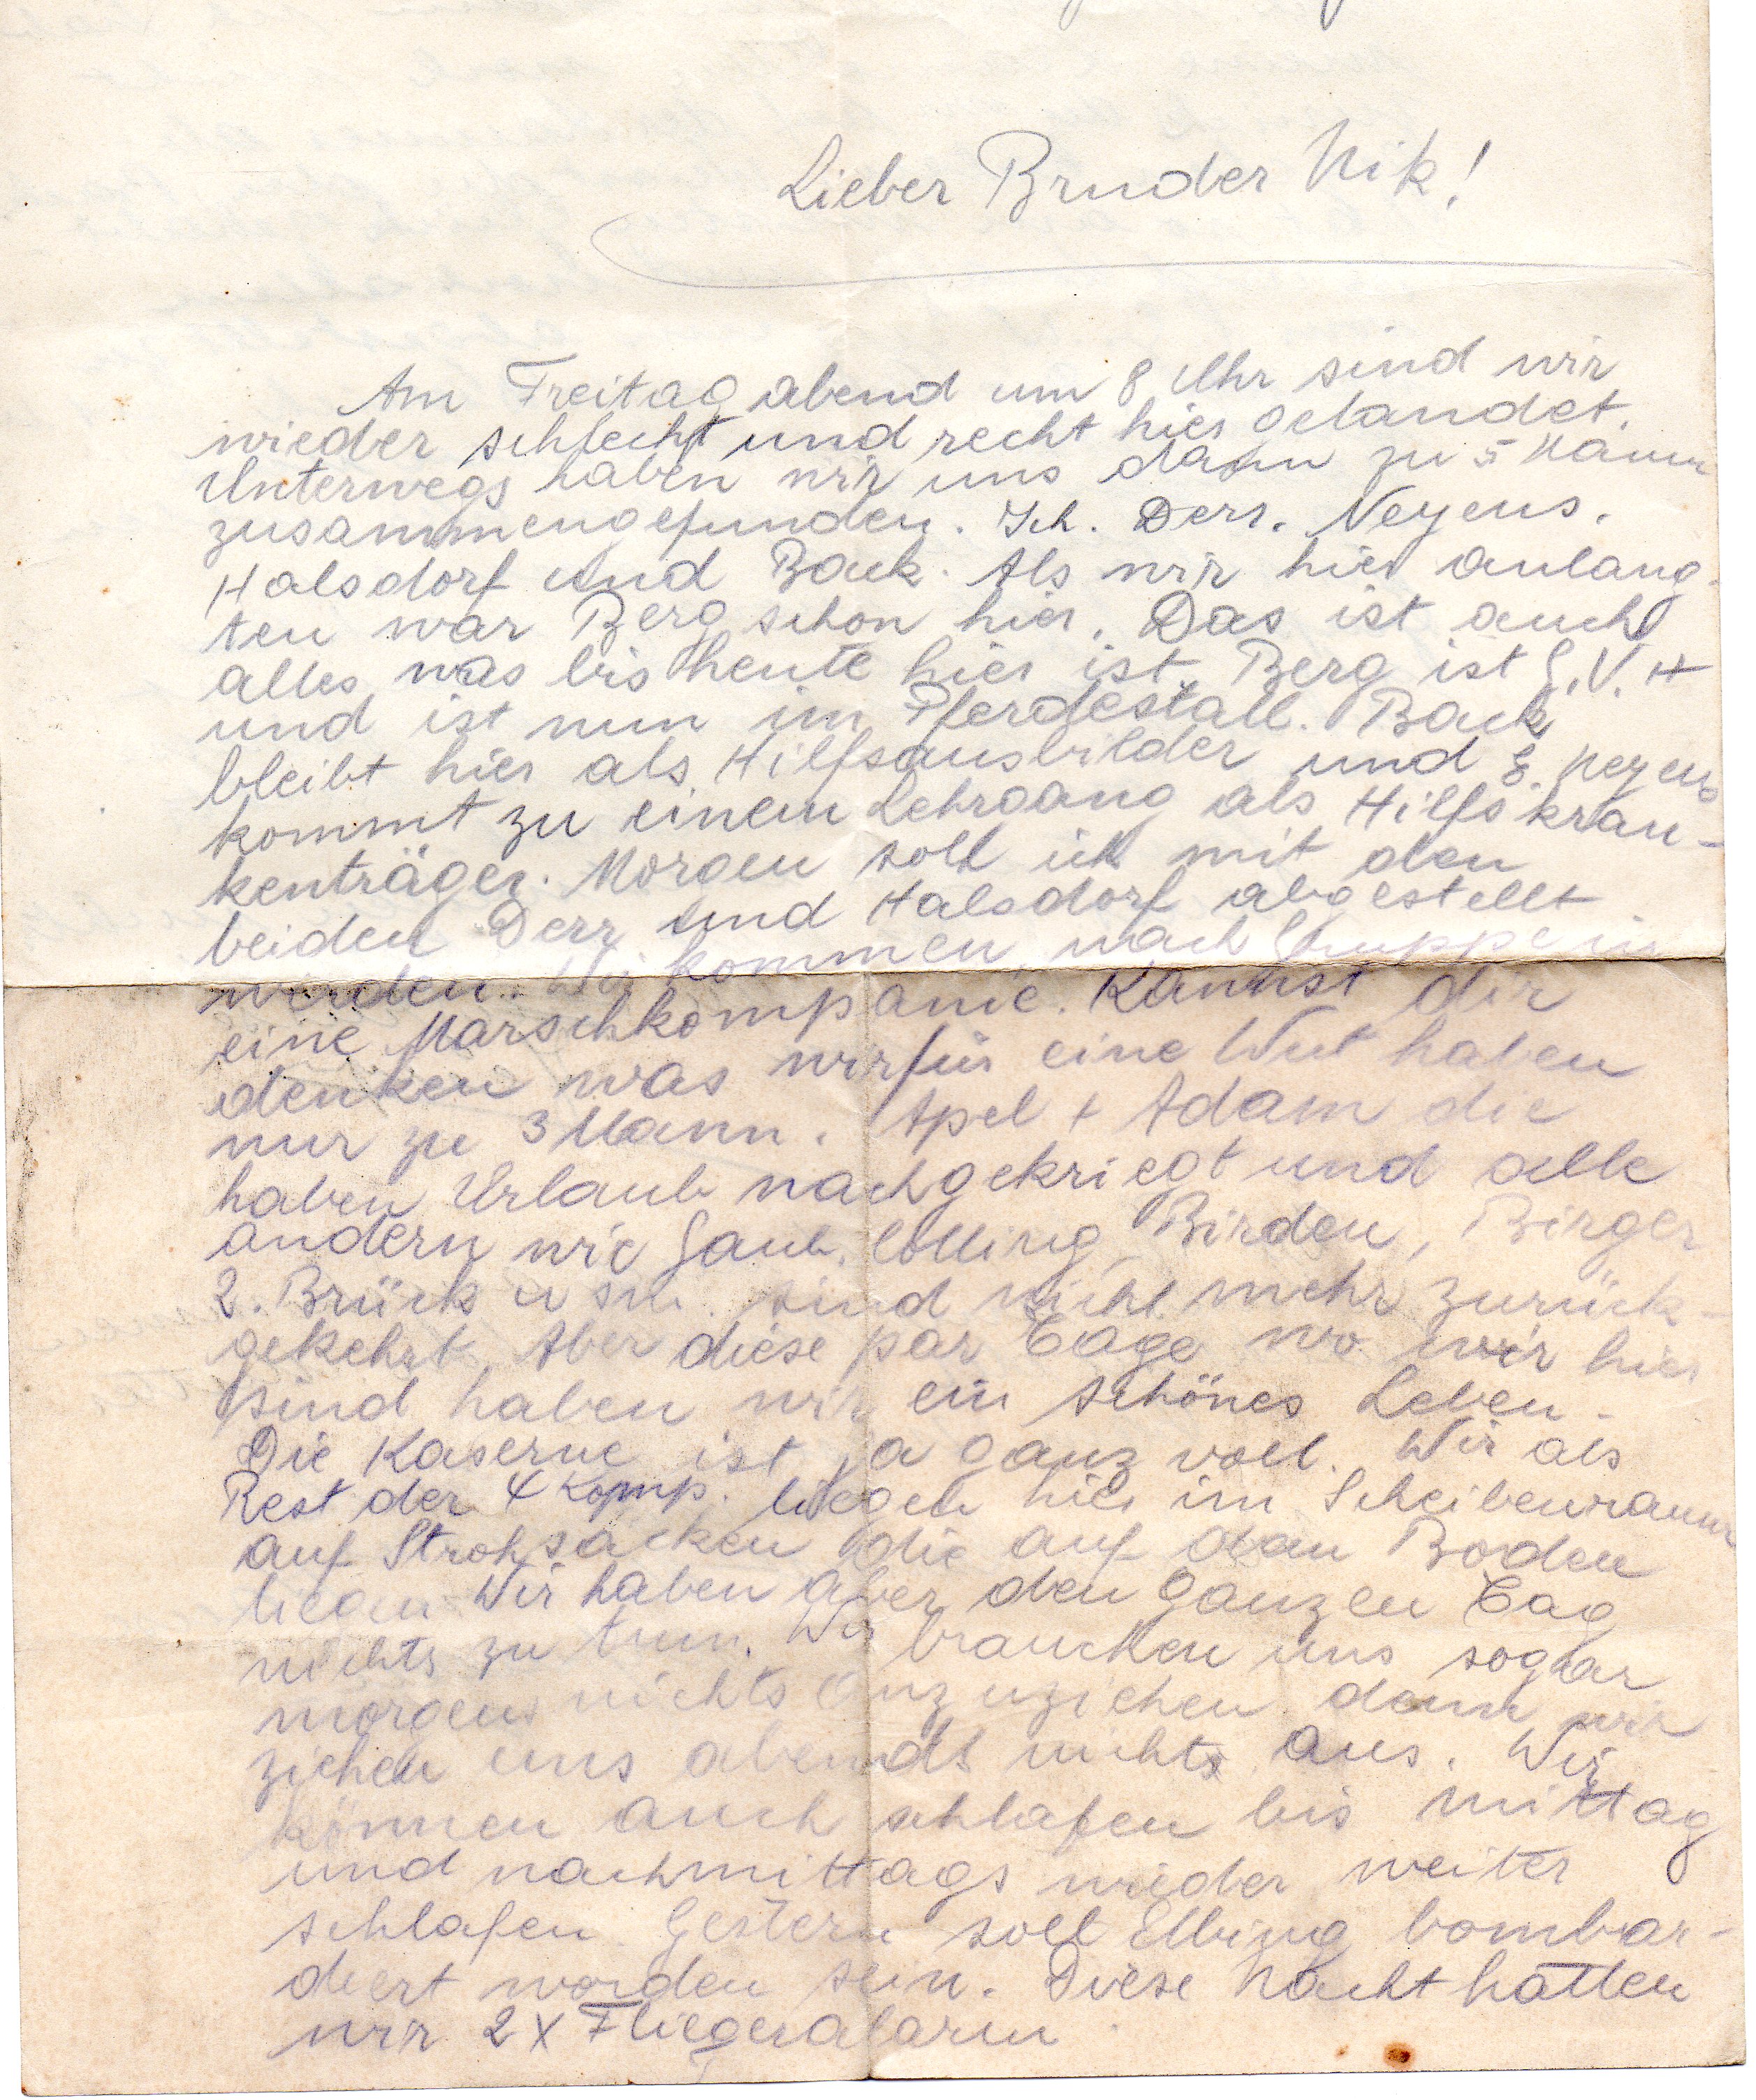 Lieber Bruder Nik!
Am Freitag abend um 8 Uhr sind wir
wieder schlecht und recht hier gelandet.
Unterwegs haben wir uns dann zu 5 Mann
zusammengefunden. Ich. Derr. Neyens.
Halsdorf und Back. Als wir hier anlang-
ten war Berg schon hier. Das ist auch
alles was bis heute hier ist. Berg ist G.V.H
und ist nun im Pferdestall. Back
bleibt hier als Hilfsausbilder und Neyens
kommt zu einem Lehrgang als Hilfskran-
kenträger. Morgen soll ich mit den
beiden Derr und Halsdorf abgestellt
werden. Wir kommen nach in
eine Marschkompanie. Kannst dir
denken was wir für eine Wut haben
nur zu 3 Mann. Apel + Adam die
haben Urlaub nachgekriegt und alle
andern wie Gaub, Colling, Birden, Birger
2. Brück usw. sind nicht mehr zurück-
gekehrt. Aber diese par Tage wo wir hier
sind haben wir ein schönes Leben.
Die Kaserne ist ja ganz voll. Wir als
Rest der 4 Komp. liegen hier im Scheibenraum
auf Strohsäcken die auf dem Boden
liegen. Wir haben aber den ganzen Tag
nichts zu tun. Wir brauchen uns sogar
morgens nichts anzuziehen denn wir
ziehen uns abends nichts aus. Wir
können auch schlafen bis mittag
und nachmittags wieder weiter
schlafen. Gestern soll Elbing bombar-
diert worden sein. Diese Nacht hatten
wir 2x Fliegeralarm.